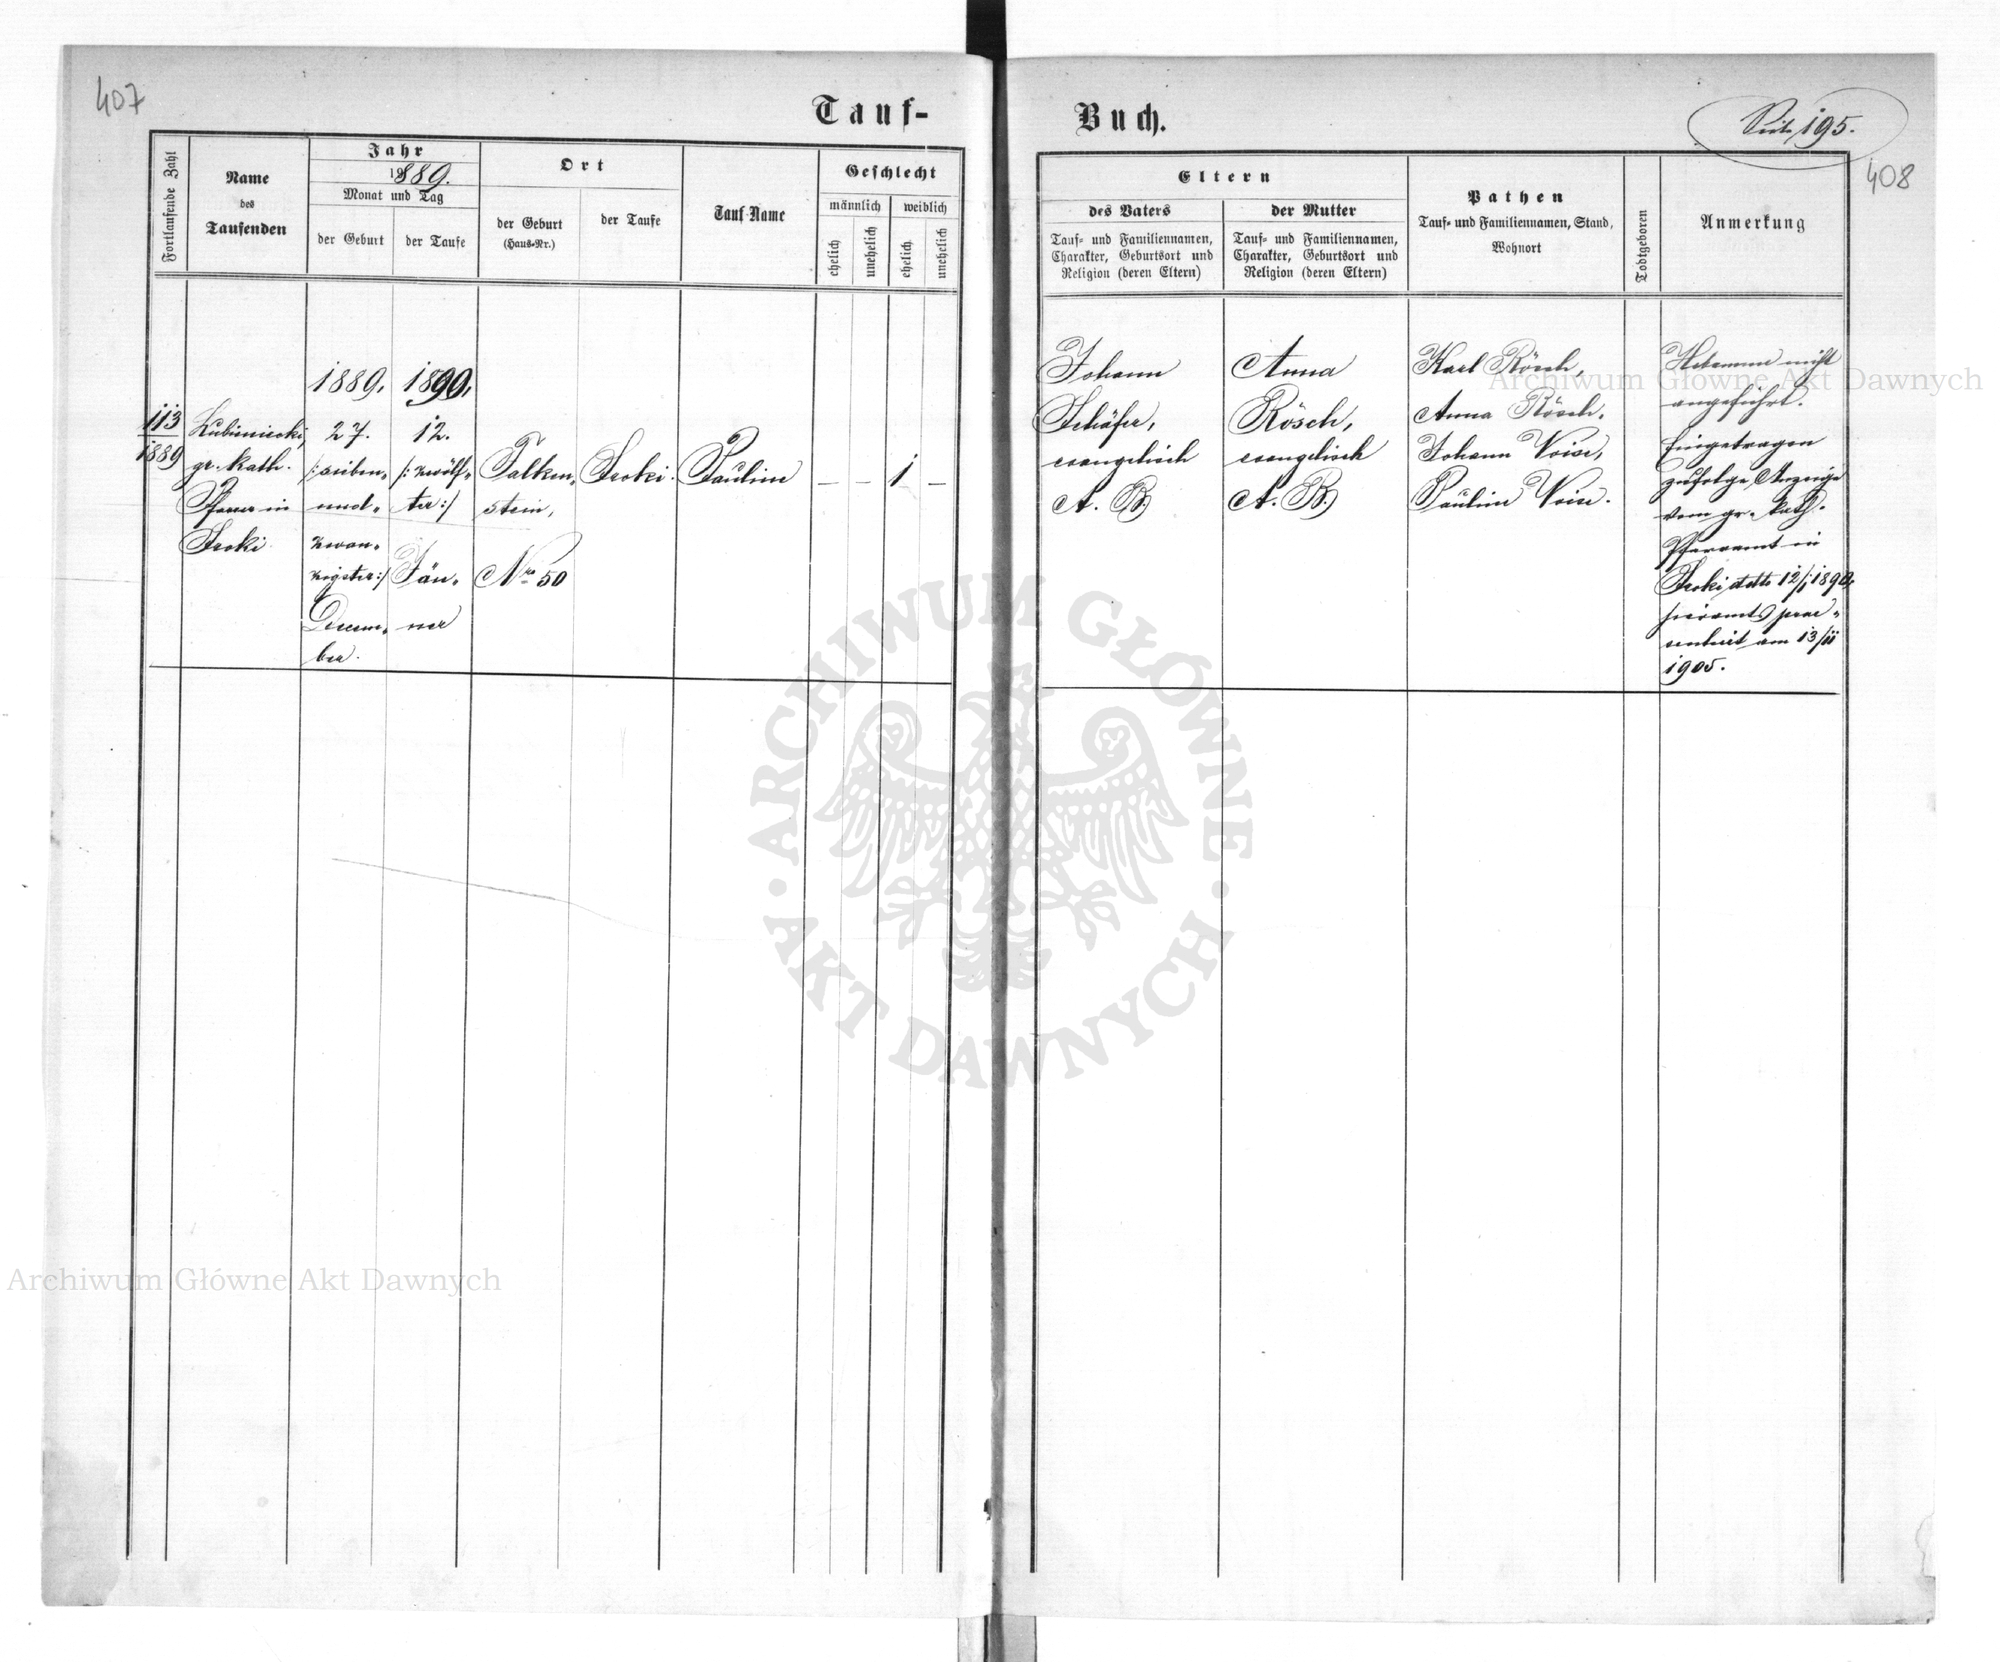 407
Tauf-
Buch.
Seite 195.
408
Fortlaufende Zahl
Name
des
Taufenden
Jahr
1889.
Monat und Tag
der Geburt
der Taufe
Ort
der Geburt
(Haus-Nr.)
der Taufe
Tauf-Name
Geschlecht
männlich
weiblich
ehelich
unehelich
ehelich
unehelich
Eltern
des Vaters
Tauf- und Familiennamen,
Charakter, Geburtsort und
Religion (deren Eltern)
der Mutter
Tauf- und Familiennamen,
Charakter, Geburtsort und
Religion (deren Eltern)
Pathen
Tauf- und Familiennamen, Stand,
Wohnort
Todtgeboren
Anmerkung
113
1889
gr. kath.
Pfarrer in
1889.
27.
/:sieben-
und-
zwan-
zigster:/
Decem-
ber.
1890.
12.
/:zwölf-
ter:/
Jän-
ner
Falken-
stein,
Nro 50
Pauline
–
–
1
–
Johann
Schäfer,
evangelisch
A. B.
Anna
Rösch,
evangelisch
A. B.
Karl Rösch,
Anna Rösch.
Johann
Pauline
Hebamme nicht
angeführt.
Eingetragen
zufolge Anzeige
vom gr. kath.
Pfarramt in
dtto 12/1 1890,
hieramts prae-
sentirt am 13/II
1905.
Archiwum Główne Akt Dawnych
ARCHIWUM GŁÓWNE
· AKT DAWNYCH ·
Archiwum Główne Akt Dawnych